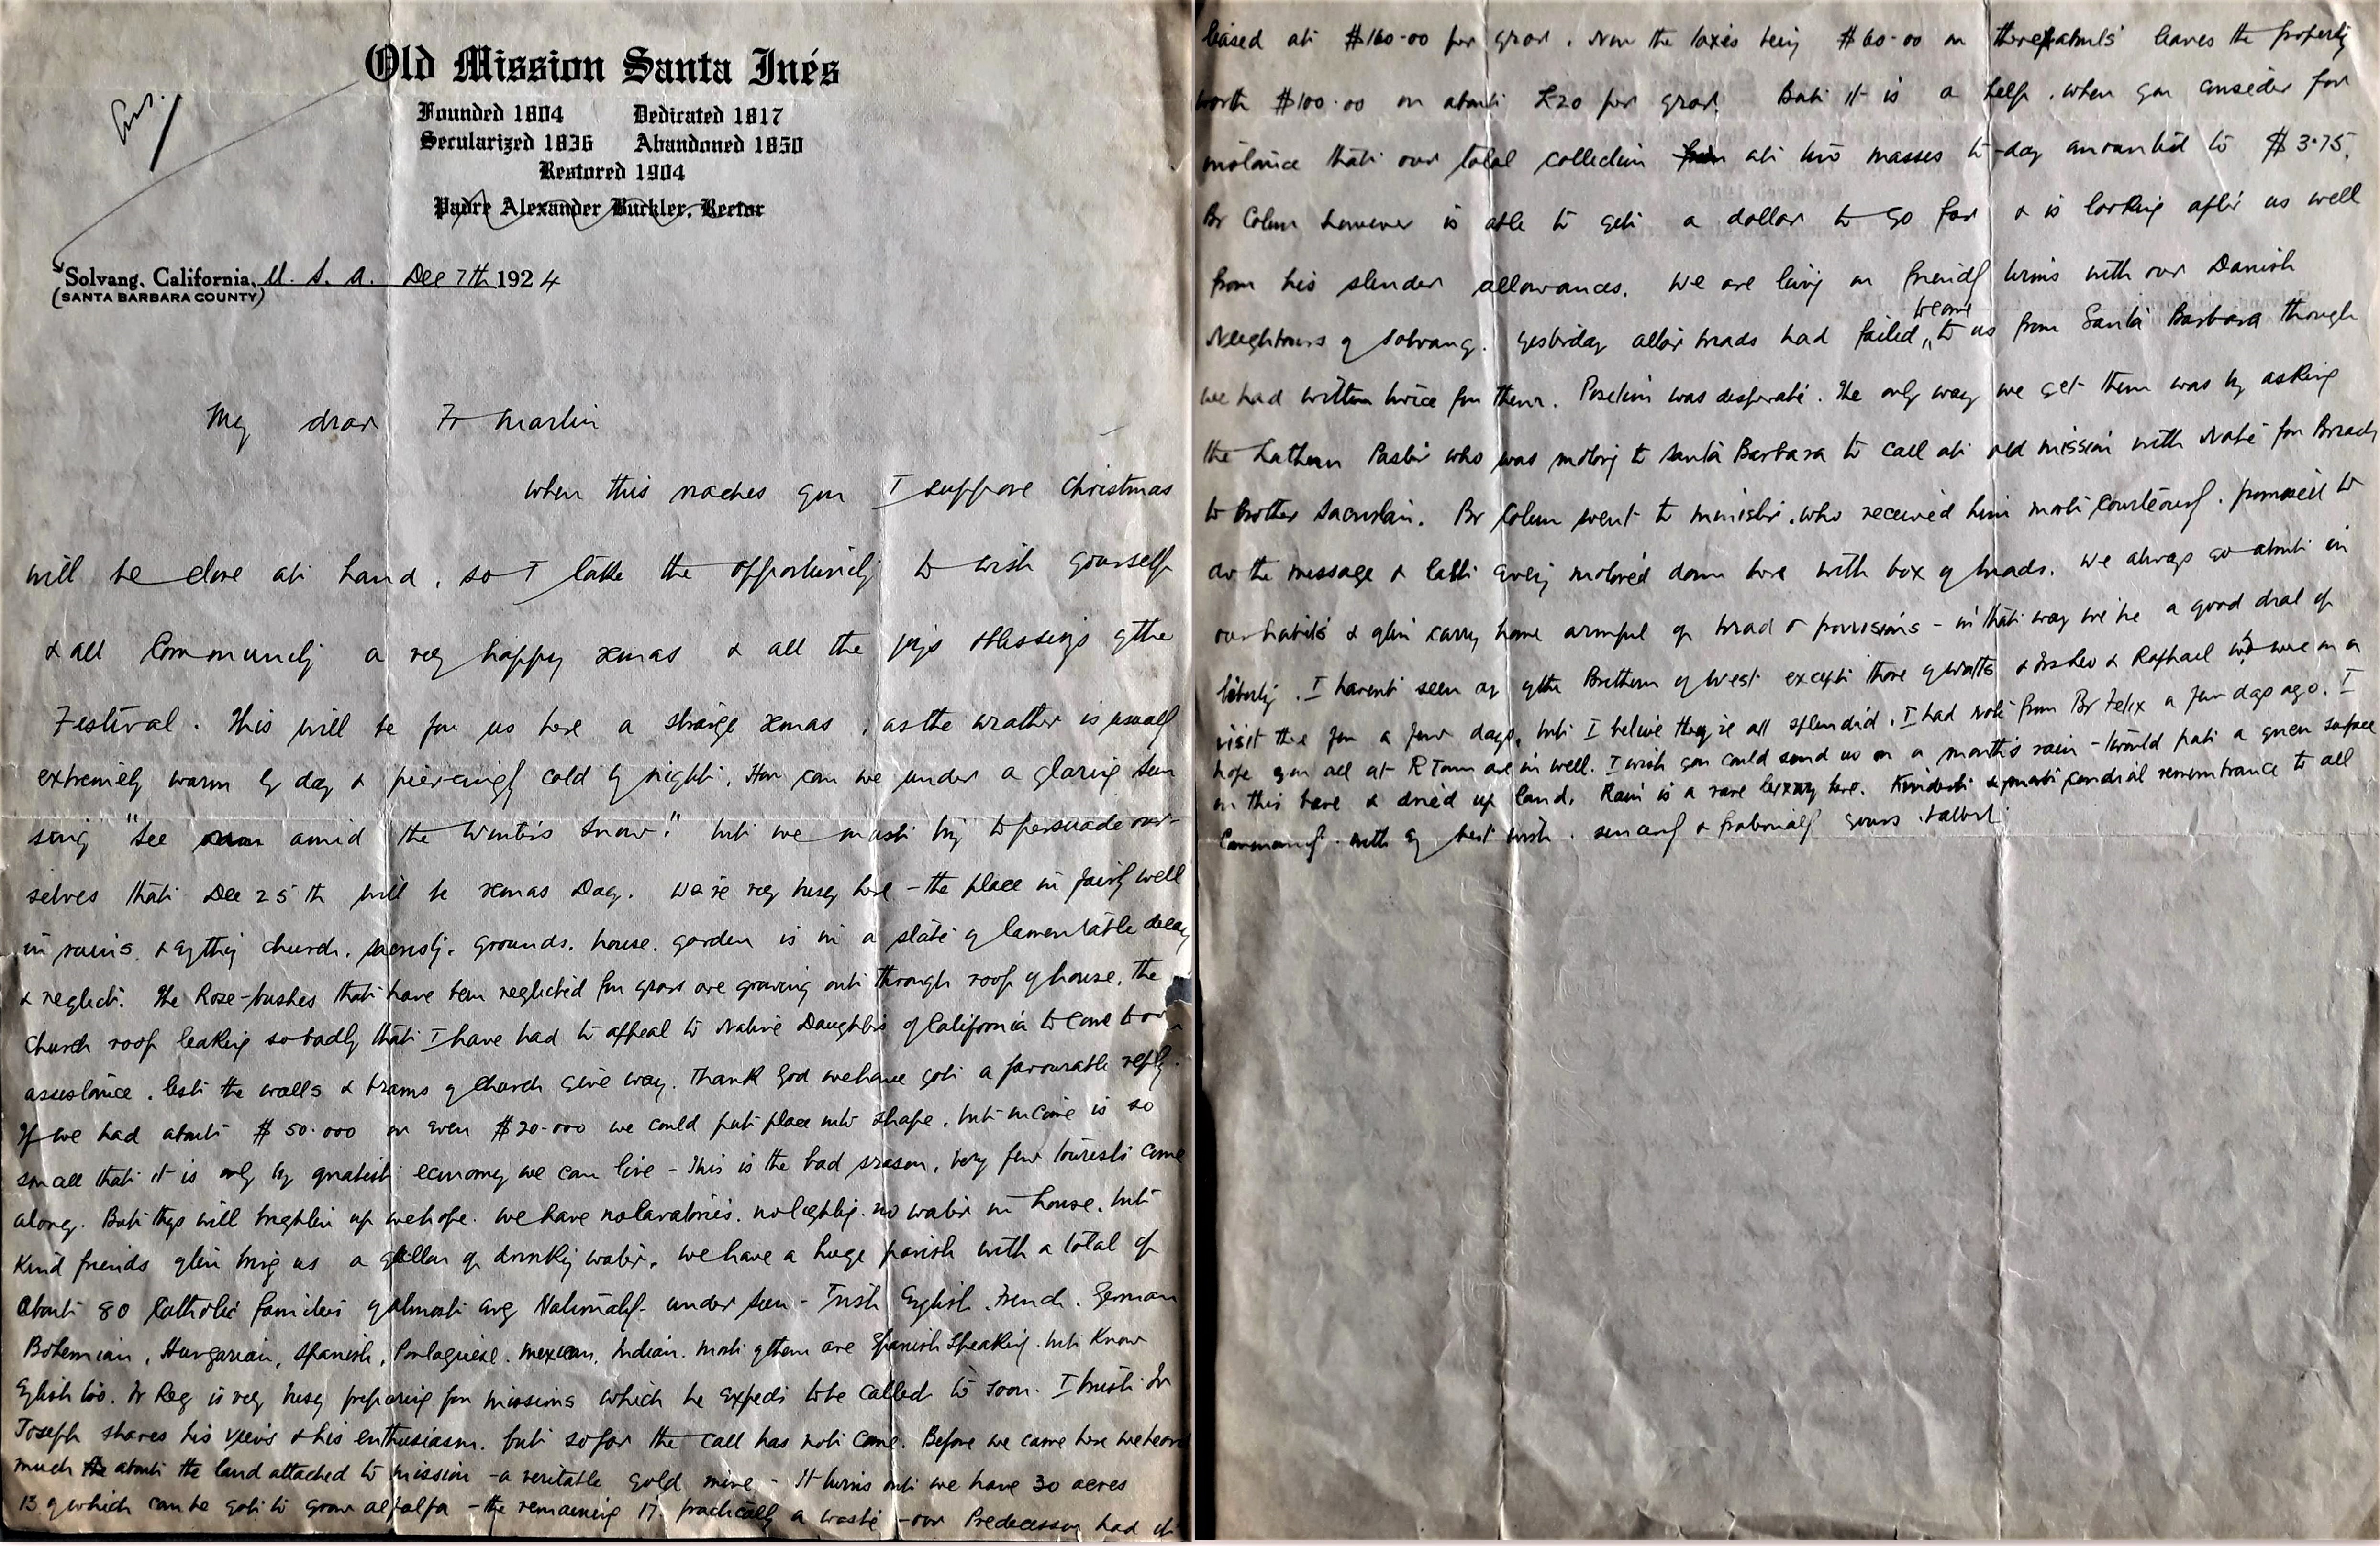 Old Mission Santa Inés
Founded 1804 Dedicated 1817
Secularized 1836 Abandoned 1850
Restored 1904
Padre Alexander Buckler, Rector
Solvang, California, U. S. A. Dec 7th 1924
(SANTA BARBARA COUNTY)
My dear Fr Martin
When this reaches you I suppose Christmas
will be close at hand, so I take the opportunity to wish yourself
& all Community a very happy xmas & all the joys & blessings of the
Festival. This will be for us here a strange xmas, as the weather is usually
extremely warm by day & piercingly cold by night. How can we under a glaring sun
sing "See amid the Winter's Snow." but we must try to persuade our-
selves that Dec 25th will be xmas Day. We're very busy here - the place in fairly well
in ruins & everything church, sacristy, grounds, house, garden is in a state of lamentable decay
& neglect. The Rose-bushes that have been neglected for years are growing out through roof of house, the
Church roof leaking so badly that I have had to appeal to Native Daughters of California to come to our
assistance, lest the walls & beams of Church give way. Thank God we have got a favourable reply.
If we had about $50.000 or even $20.000 we could put place into shape, but income is so
small that it is only by greatest economy we can live - This is the bad season, very few tourists come
along. But things will brighten up we hope. We have no lavatories, no lighting, no water in house, but
Kind friends often bring us a gallon of drinking water. We have a huge parish with a total of
about 80 Catholic families of almost every Nationality under sun - Irish English, French, German
Bohemian, Hungarian, Spanish, Portuguese, Mexican, Indian. Most of them are Spanish Speaking, but Know
English too. Fr Reg is very busy preparing for missions which he expects to be called to soon. I trust Fr
Joseph shares his views & his enthusiasm, but so far the call has not come. Before we came here we heard
much about the land attached to mission - a veritable gold mine - It turns out we have 30 acres
13 of which can be got to grow alfalfa - the remaining 17 practically a waste - our Predecessor had it
leased at $160.00 per year. Now the taxes being $60.00 on thereabouts leaves the property
worth $100.00 or about £20 per year. But it is a help, when you consider for
instance that our total collection at two masses to-day amounted to $3.75.
Br Colum however is able to get a dollar to go far & is looking after us well
from his slender allowances. We are living on friendly terms with our Danish
Neighbours of Solvang. Yesterday altar breads had failed to come to us from Santa Barbara though
we had written twice for them. Position was desperate. The only way we get them was by asking
the Lutheran Pastor who was motoring to Santa Barbara to call at old mission with Note for Breads
to Brother Sacristan. Br Colum went to minister, who received him most courteously, promised to
do the message & latter evening motored down here with box of breads. We always go about in
our habits & often carry home armful of bread & provisions - in that way we've a good deal of
liberty. I haven't seen any of the Brethren of West except those of Watts & & Raphael who were on a
visit there for a few days, but I believe they're all splendid. I had note from Br Felix a few days ago. I
hope you all at R Town are in well. I wish you could send us on a month's rain - twould put a green surface
on this bare & dried up land. Rain is a rare luxury here. Kindest & most cordial remembrance to all
Community. With every best wish. sincerely & fraternally yours Albert